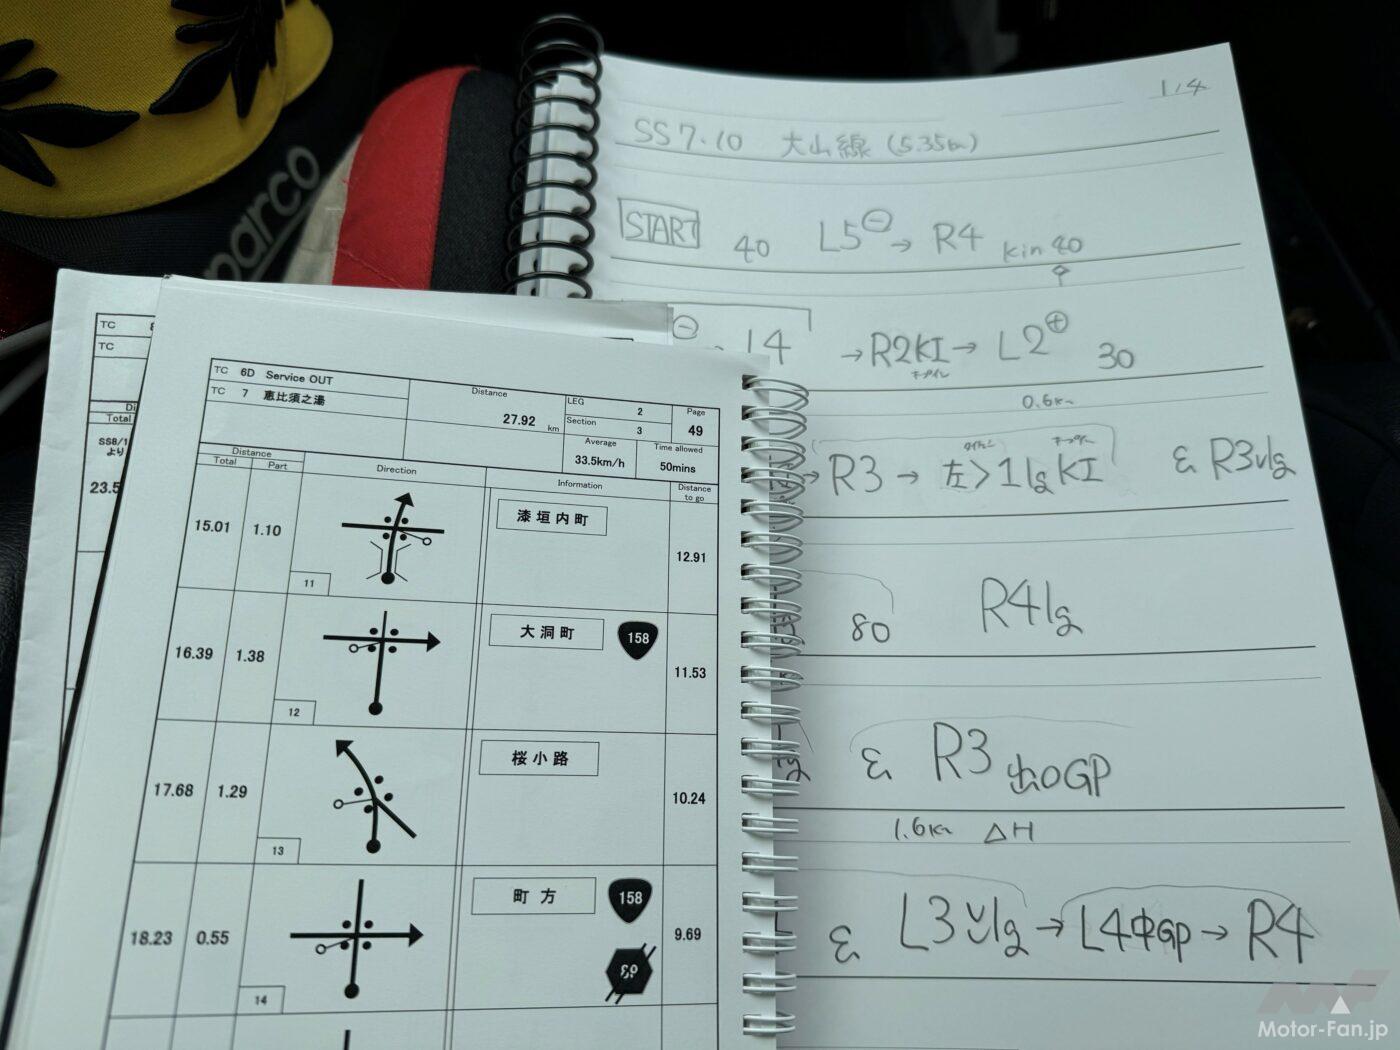 sparco
1/4
SS7.10 大山線 (5.35km)
START 40 L5⊖→ R4 kin 40
⊖ L4 →R2KI→ L2⊕ 30
キープイン
0.6km
→ R3 → 左>1lgKI & R3vlg
キープイン
80 R4lg
& R3 出口GP
1.6km △H
& L3vlg → L4中GP → R4
TC
TC
Total
SS8/1
より
23.5
TC 6D Service OUT
TC 7 恵比須之湯
Distance
27.92 km
LEG 2
Section 3
Page
49
Average
33.5km/h
Time allowed
50mins
Distance
Total Part
Direction
Information
Distance
to go
15.01 1.10 11 漆垣内町 12.91
16.39 1.38 12 大洞町 158 11.53
17.68 1.29 13 桜小路 10.24
18.23 0.55 14 町方 158 9.69
Motor-Fan.jp